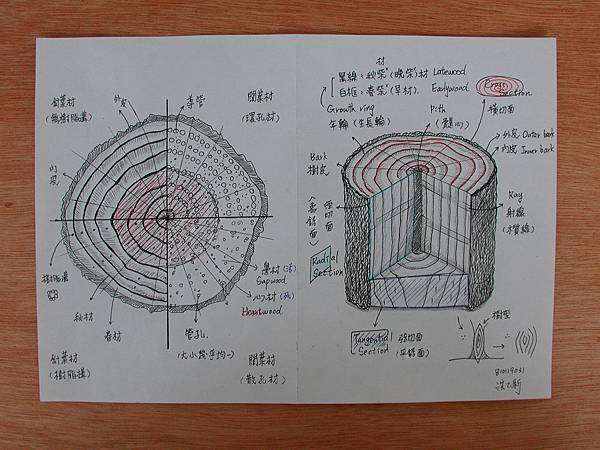 針葉材
(無樹脂溝)
外皮
導管
闊葉材
(環孔材)
內皮
樹脂溝
秋材
春材
針葉材
(樹脂溝)
管孔
(大小幾乎均一)
邊材(活)
Sapwood
心材(死)
Heartwood
闊葉材
(散孔材)
材
黑線:秋柴*(晚柴*)材 Latewood
白框:春柴*(早材) Earlywood
Growth ring
年輪(生長輪)
Pith
(髓心)
Cross
Section
橫切面
外皮 Outer bark
內皮 Inner bark
Bark
樹皮
徑切面
Radial
Section
Ray
射線
(木質線)
Tangential
Section
弦切面
(平鋸面)
B10119031